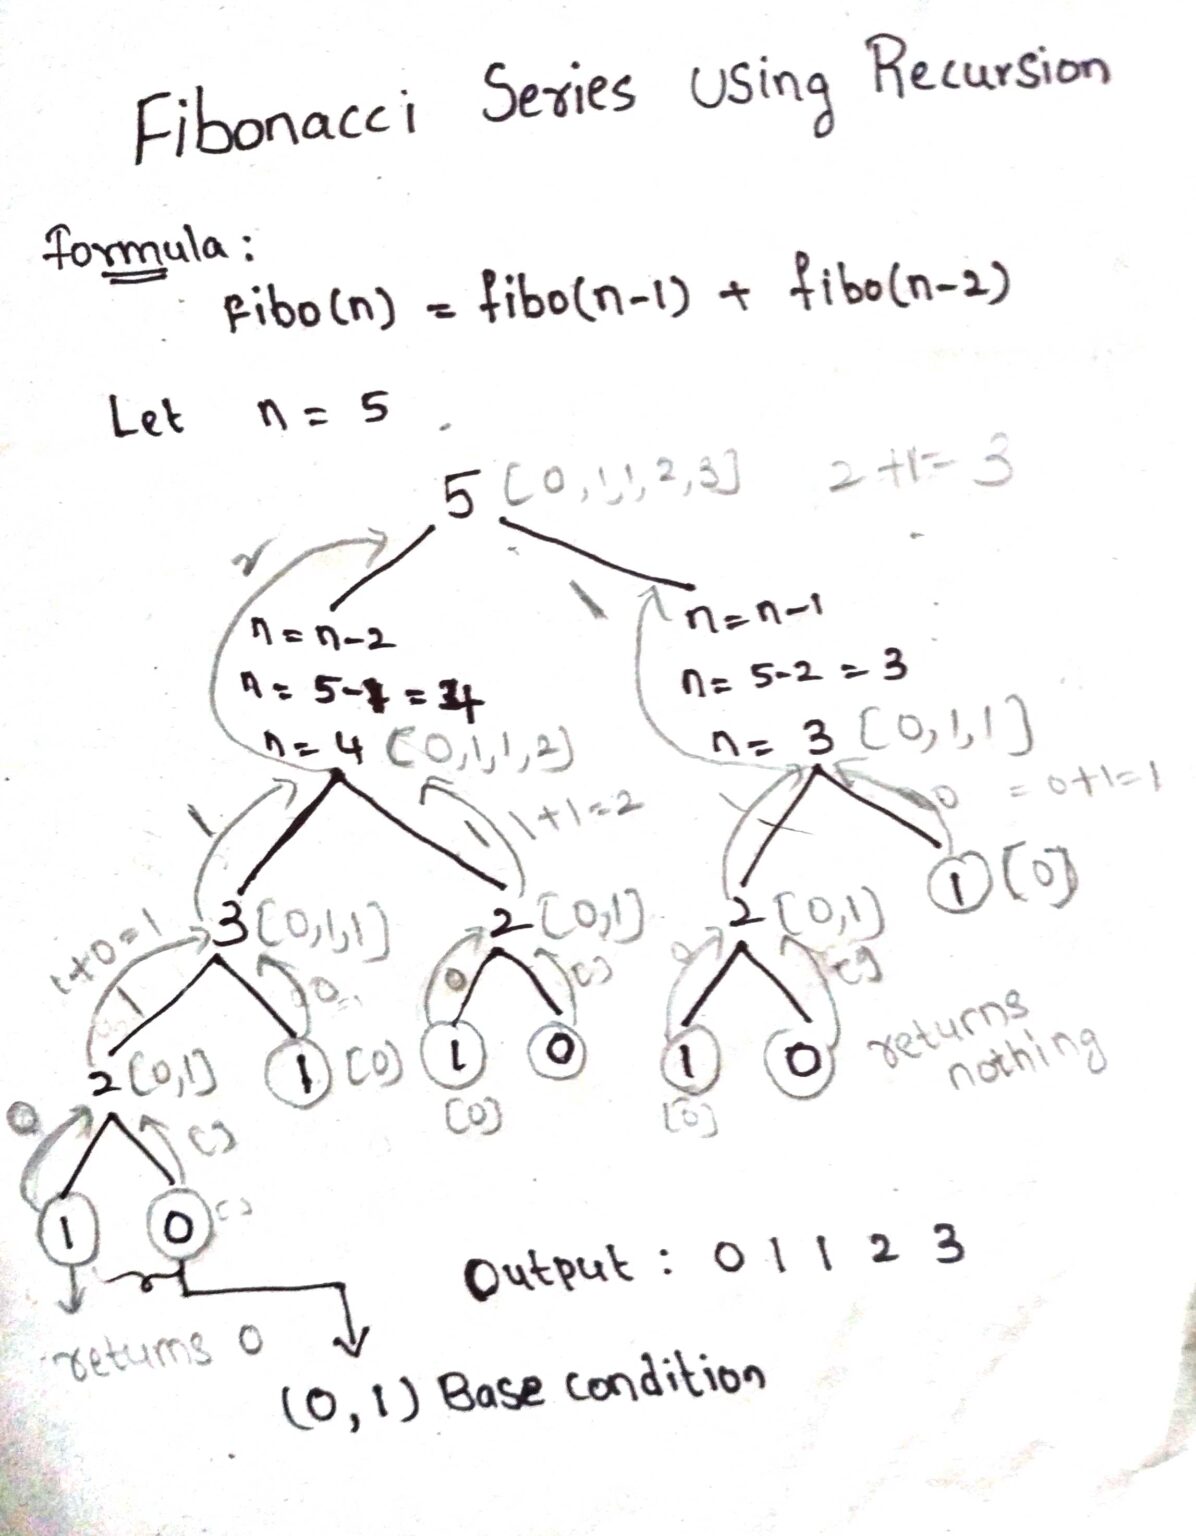 Fibonacci Series Using Recursion
formula:
Fibo(n) = fibo(n-1) + fibo(n-2)
Let n = 5
5 [0,1,1,2,3] 2+1=3
n=n-2 n=n-1
n= 5-1 =4 n= 5-2 = 3
n= 4 [0,1,1,2] n= 3 [0,1,1]
1 1 1+1=2 0 = 0+1=1
1 [0]
1+0=1 3 [0,1,1] 2 [0,1] 2 [0,1]
1 0 0 [] 0 []
2 [0,1] 1 [0] 1 0 1 0 returns
nothing
[0] [0]
0 []
1 0 []
Output : 0 1 1 2 3
returns 0
(0,1) Base condition